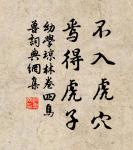 不入虎穴
焉得虎子
幼學瓊林卷四鳥
獸詞典網集